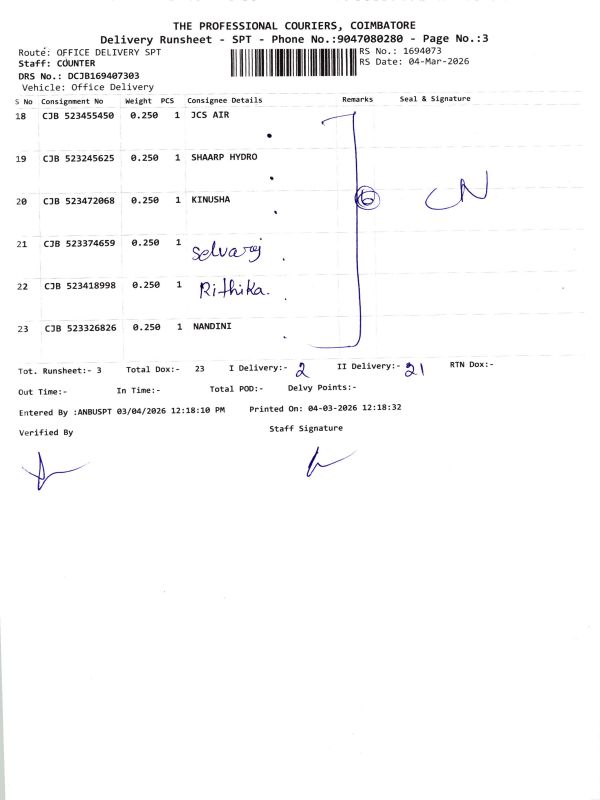 THE PROFESSIONAL COURIERS, COIMBATORE
Delivery Runsheet - SPT - Phone No.:9047080280 - Page No.:3
Route: OFFICE DELIVERY SPT RS No.: 1694073
Staff: COUNTER RS Date: 04-Mar-2026
DRS No.: DCJB169407303
Vehicle: Office Delivery
S No Consignment No Weight PCS Consignee Details Remarks Seal & Signature
18 CJB 523455450 0.250 1 JCS AIR
19 CJB 523245625 0.250 1 SHAARP HYDRO
20 CJB 523472068 0.250 1 KINUSHA 6 CN
21 CJB 523374659 0.250 1 Selvaraj
22 CJB 523418998 0.250 1 Rithika.
23 CJB 523326826 0.250 1 NANDINI
Tot. Runsheet:- 3 Total Dox:- 23 I Delivery:- 2 II Delivery:- 21 RTN Dox:-
Out Time:- In Time:- Total POD:- Delvy Points:-
Entered By :ANBUSPT 03/04/2026 12:18:10 PM Printed On: 04-03-2026 12:18:32
Verified By Staff Signature